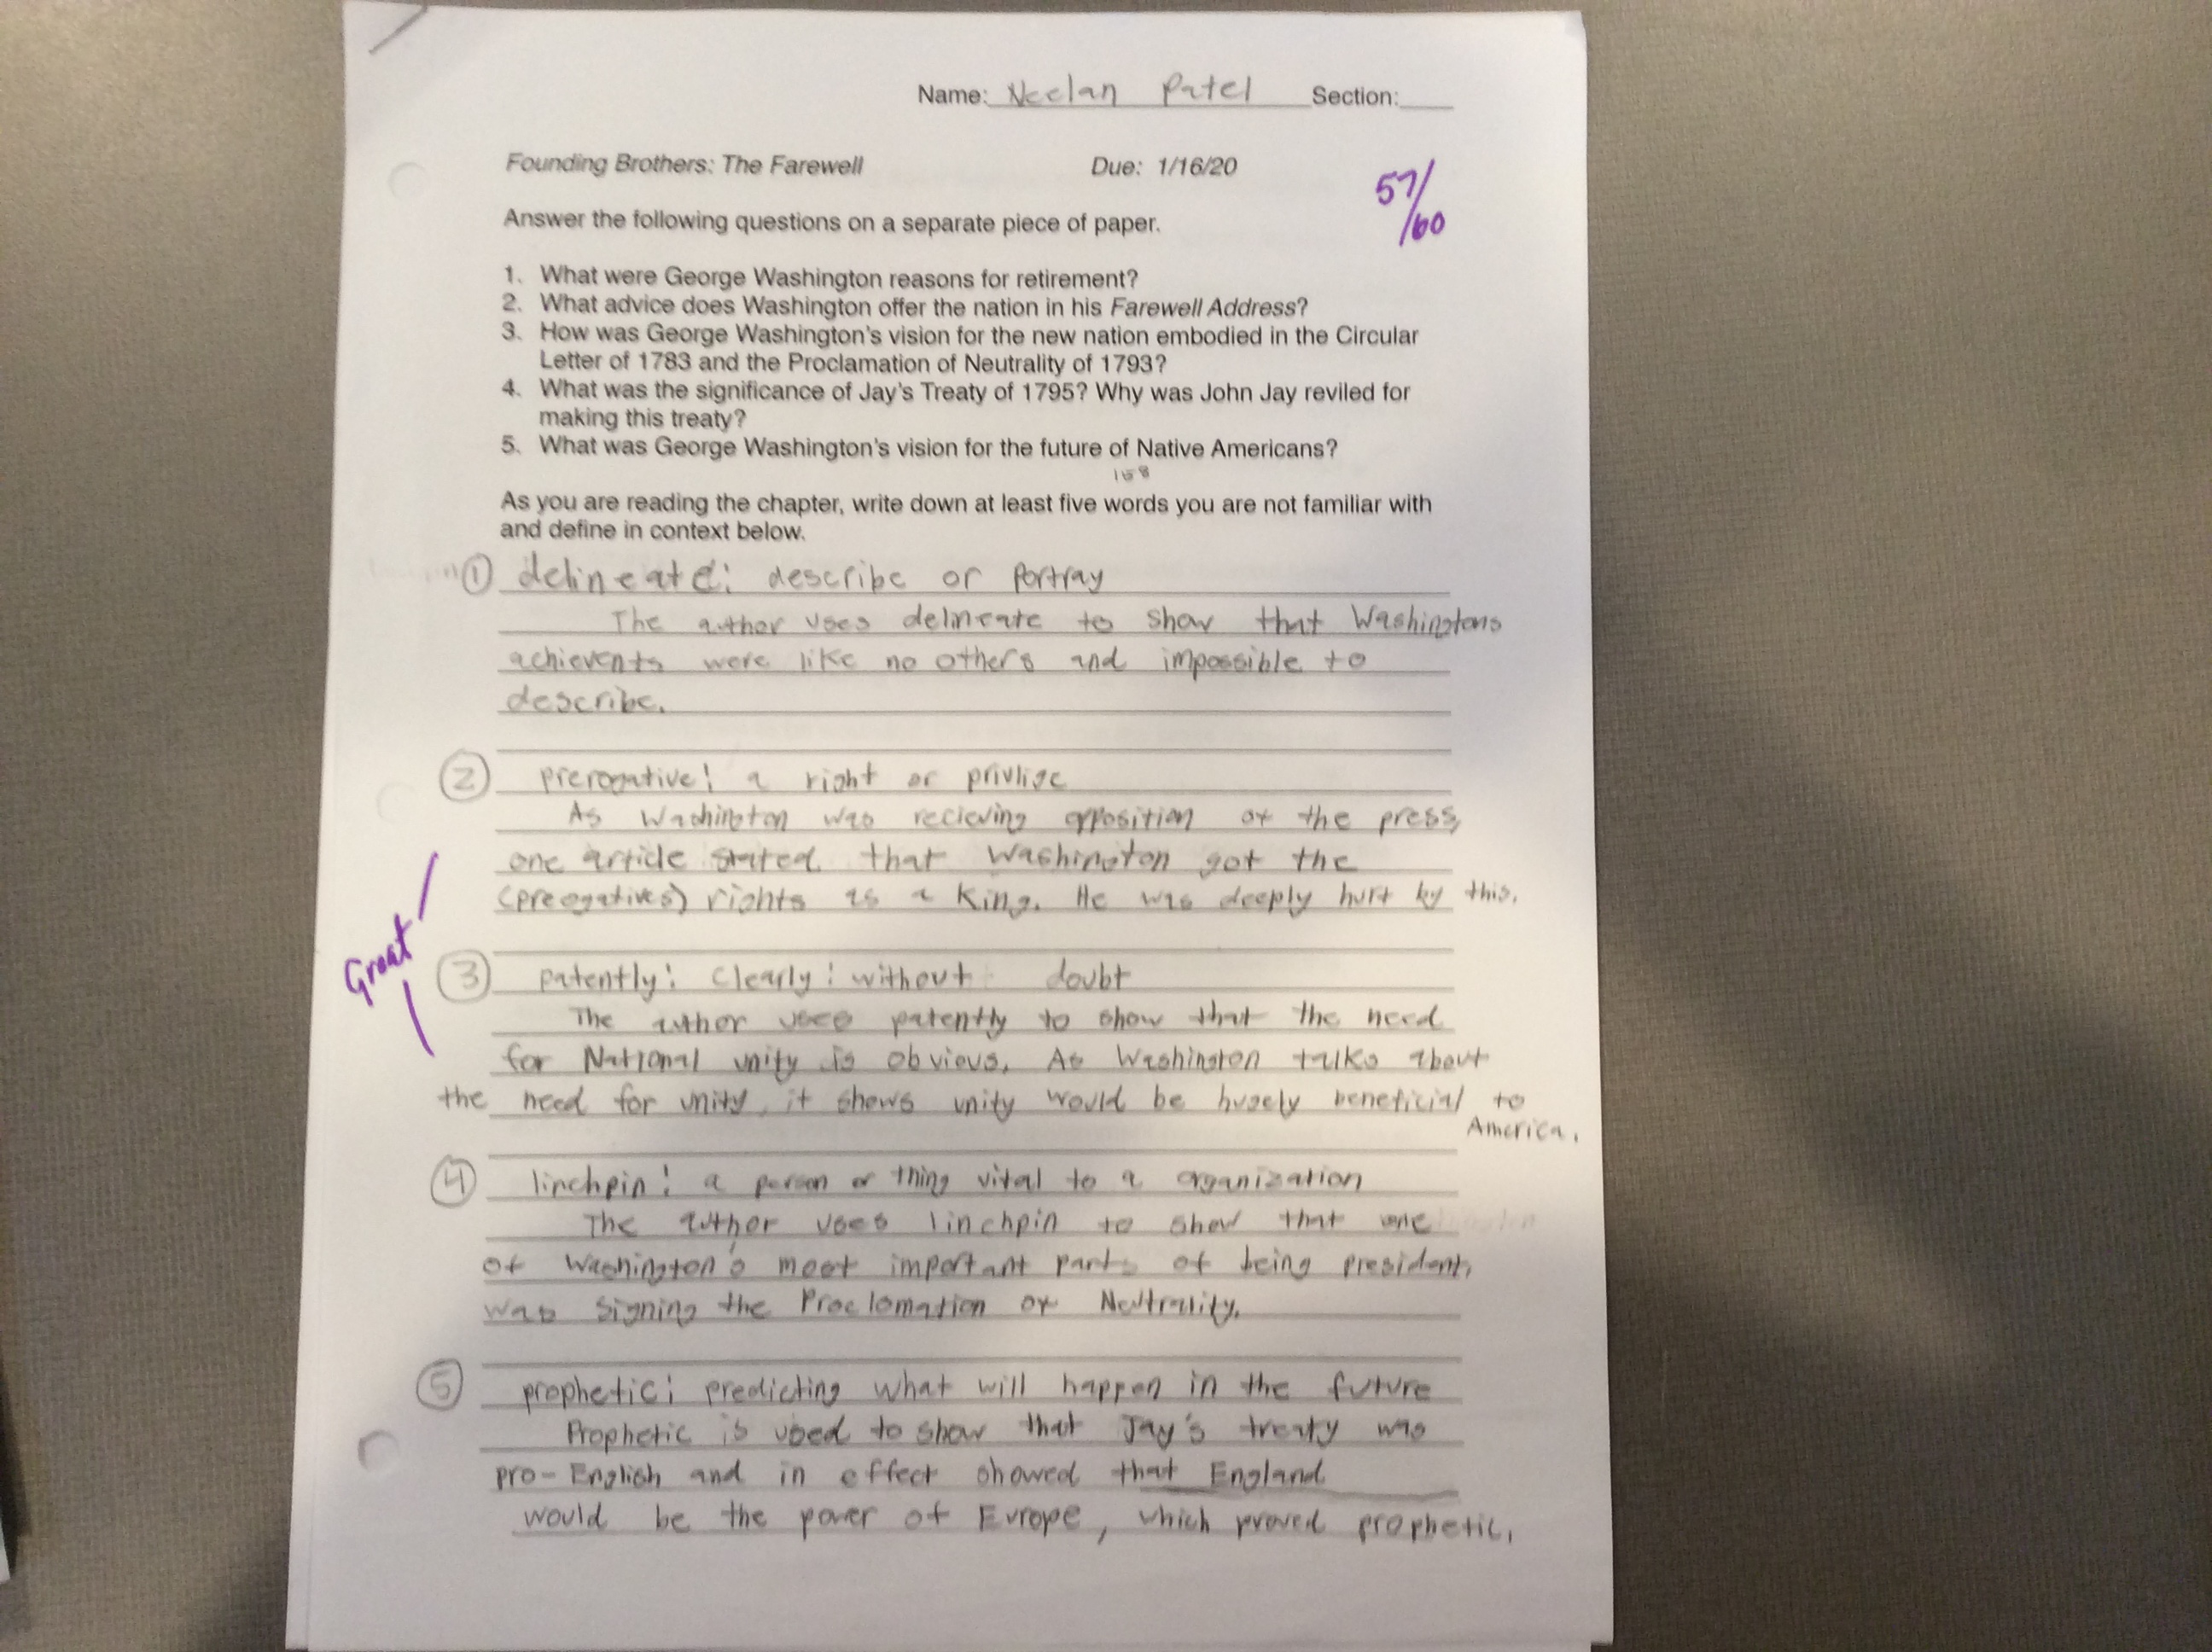 Name: Neelan Patel Section:
Founding Brothers: The Farewell Due: 1/16/20
57/60
Answer the following questions on a separate piece of paper.
1. What were George Washington reasons for retirement?
2. What advice does Washington offer the nation in his Farewell Address?
3. How was George Washington's vision for the new nation embodied in the Circular
Letter of 1783 and the Proclamation of Neutrality of 1793?
4. What was the significance of Jay's Treaty of 1795? Why was John Jay reviled for
making this treaty?
5. What was George Washington's vision for the future of Native Americans?
158
As you are reading the chapter, write down at least five words you are not familiar with
and define in context below.
① delineate: describe or portray
The author uses delineate to show that Washingtons
achievents were like no others and impossible to
describe.
② prerogative: a right or privlige
As Washington was recieving opposition of the press,
one article stated that Washington got the
(preogatives) rights as a King. He was deeply hurt by this.
Great
③ patently: clearly: without doubt
The author uses patently to show that the need
for National unity is obvious. As Washington talks about
the need for unity, it shows unity would be hugely beneficial to
America.
④ linchpin: a person or thing vital to a organization
The author uses linchpin to show that one
of Washington's most important parts of being president,
was signing the Proclomation of Neutrality.
⑤ prophetic: predicting what will happen in the future
Prophetic is used to show that Jay's treaty was
pro-English and in effect showed that England
would be the power of Europe, which proved prophetic.